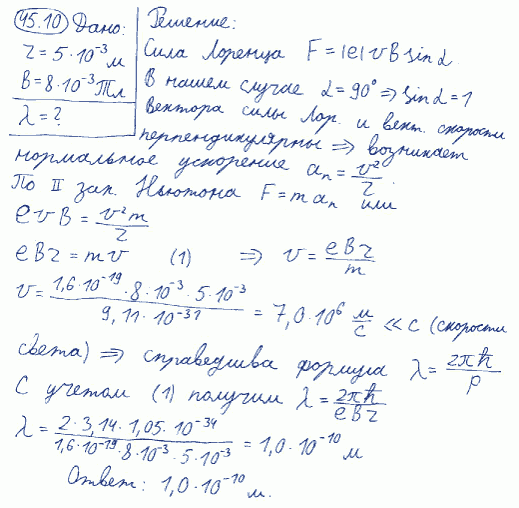 45.10 Дано:
r = 5·10⁻³ м
B = 8·10⁻³ Тл
λ = ?
Решение:
Сила Лоренца F = |e|vB sin α
В нашем случае α = 90° ⇒ sin α = 1
Вектора силы Лор. и вект. скорости
перпендикулярны ⇒ возникает
нормальное ускорение aₙ = v²/r.
По II зак. Ньютона F = maₙ или
evB = v²m/r
eBr = mv (1) ⇒ v = eBr/m
v = 1,6·10⁻¹⁹·8·10⁻³·5·10⁻³/9,11·10⁻³¹ = 7,0·10⁶ м/с ≪ c (скорости
света) ⇒ справедлива формула λ = 2πħ/p
С учетом (1) получим λ = 2πħ/eBr
λ = 2·3,14·1,05·10⁻³⁴/1,6·10⁻¹⁹·8·10⁻³·5·10⁻³ = 1,0·10⁻¹⁰ м
Ответ: 1,0·10⁻¹⁰ м.